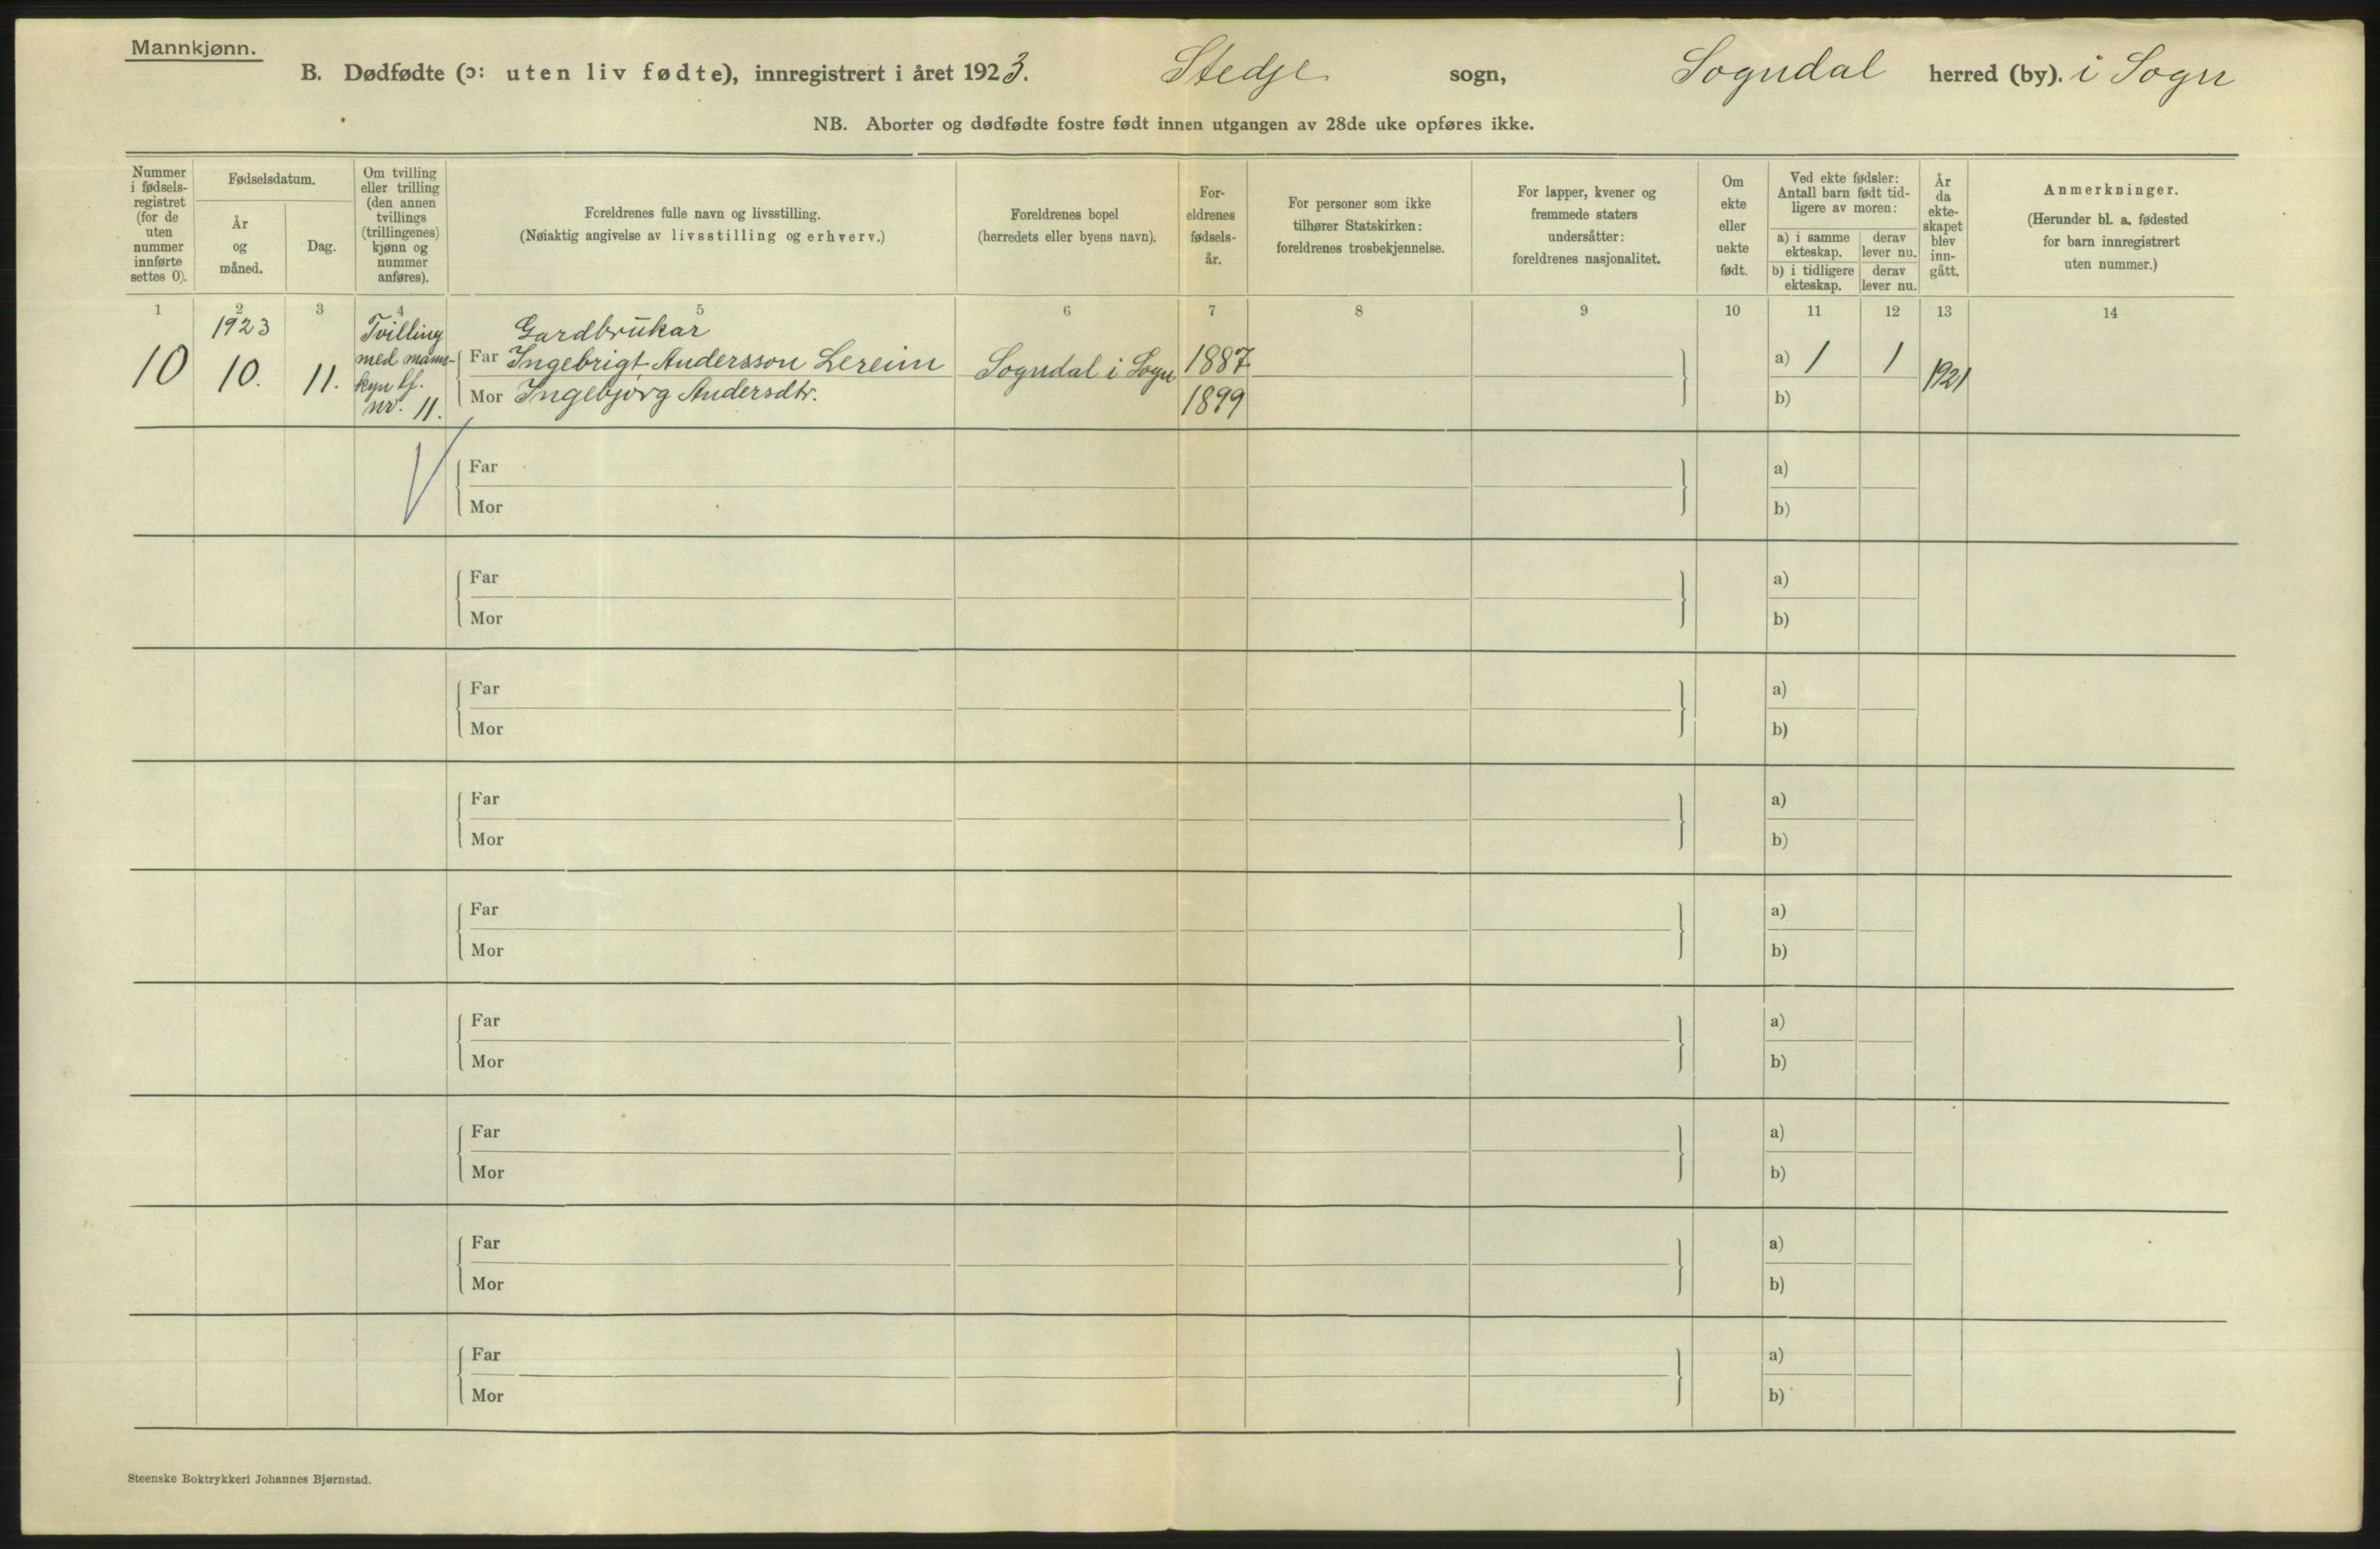 Mannkjønn.
B. Dødfødte (ɔ: uten liv fødte), innregistrert i året 1923. Stedje sogn, Sogndal herred (by). i Sogn
NB. Aborter og dødfødte fostre født innen utgangen av 28de uke opføres ikke.
Nummer
i fødsels-
registret
(for de
uten
nummer
innførte
settes 0).
Fødselsdatum.
År
og
måned.
Dag.
Om tvilling
eller trilling
(den annen
tvillings
(trillingenes)
kjønn og
nummer
anføres).
Foreldrenes fulle navn og livsstilling.
(Nøiaktig angivelse av livsstilling og erhverv.)
Foreldrenes bopel
(herredets eller byens navn).
For-
eldrenes
fødsels-
år.
For personer som ikke
tilhører Statskirken:
foreldrenes trosbekjennelse.
For lapper, kvener og
fremmede staters
undersåtter:
foreldrenes nasjonalitet.
Om
ekte
eller
uekte
født.
Ved ekte fødsler:
Antall barn født tid-
ligere av moren:
a) i samme
ekteskap.
derav
lever nu.
b) i tidligere
ekteskap.
derav
lever nu.
År
da
ekte-
skapet
blev
inn-
gått.
Anmerkninger.
(Herunder bl. a. fødested
for barn innregistrert
uten nummer.)
1 2 3 4 5 6 7 8 9 10 11 12 13 14
10
1923
10.
11.
Tvilling
med manns-
kyn lf.
nr. 11.
Gardbrukar
Far Ingebrigt Andersson Lereim
Mor Ingebjørg Andersdtr.
Sogndal i Sogn
1887
1899
a) 1 1
b)
1921
Far a)
Mor b)
Far a)
Mor b)
Far a)
Mor b)
Far a)
Mor b)
Far a)
Mor b)
Far a)
Mor b)
Far a)
Mor b)
Far a)
Mor b)
Far a)
Mor b)
Steenske Boktrykkeri Johannes Bjørnstad.